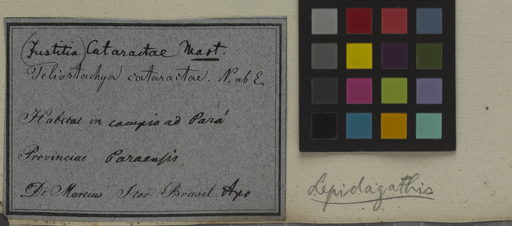 (Justitia) Cataractae Mart.
Teliostachya cataractae. N. ab E.
Habitat in campis ad Pará
Provinciae Paraensis
Dr Martius Iter Brasil. Apr
Lepidagathis